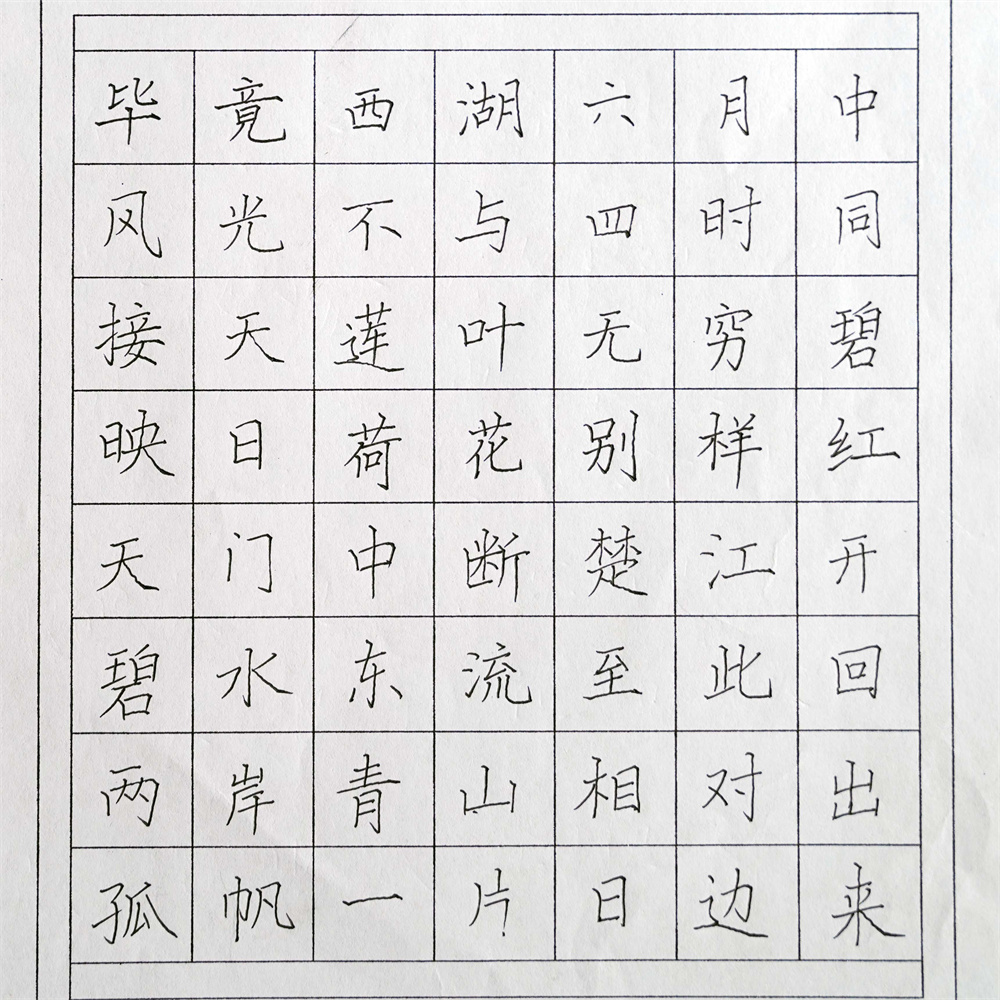 毕竟西湖六月中
风光不与四时同
接天莲叶无穷碧
映日荷花别样红
天门中断楚江开
碧水东流至此回
两岸青山相对出
孤帆一片日边来